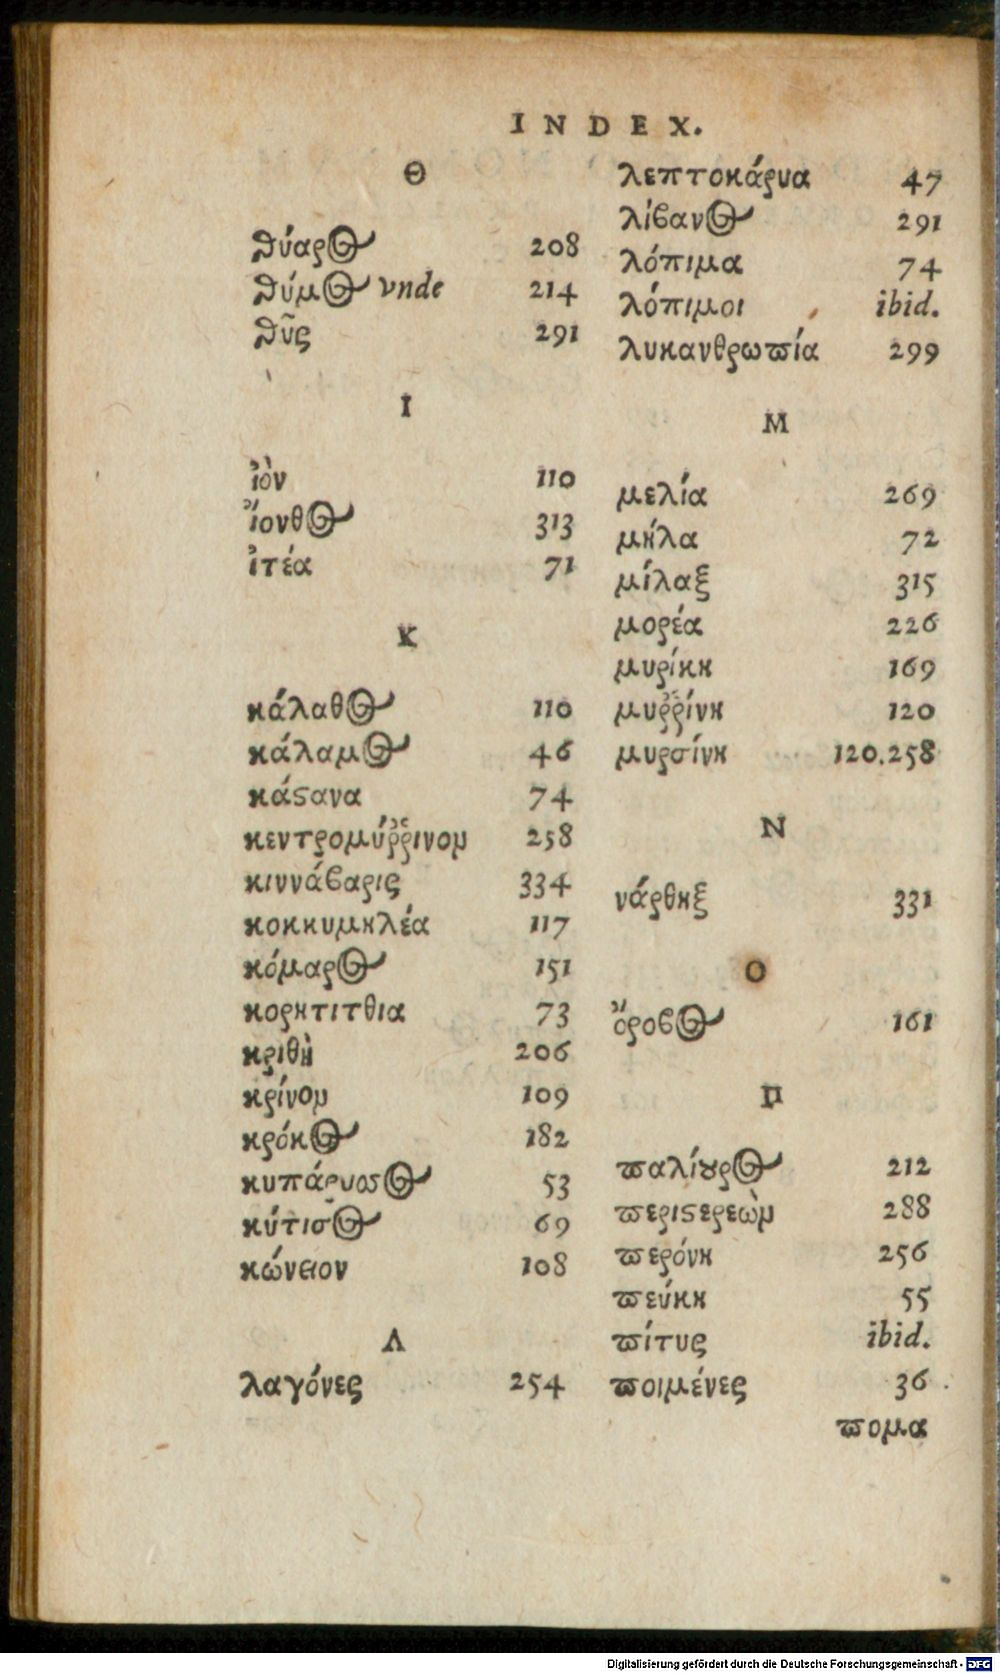 INDEX.
Θ
ϑύαρος 208
ϑύμος vnde 214
ϑῦς 291
I
ἰὸν 110
ἴονθος 313
ἰτέα 71
K
κάλαθος 110
κάλαμος 46
κάϛανα 74
κεντρομύῤῥινον 258
κιννάβαρις 334
κοκκυμηλέα 117
κόμαρος 151
κορητιτθια 73
κριθὴ 206
κρίνον 109
κρόκος 182
κυπάρυσσος 53
κύτισος 69
κώνειον 108
Λ
λαγόνες 254
λεπτοκάρυα 47
λίβανος 291
λόπιμα 74
λόπιμοι ibid.
λυκανθρωπία 299
M
μελία 269
μήλα 72
μίλαξ 315
μορέα 226
μυρίκη 169
μυῤῥίνη 120
μυρσίνη 120.258
N
νάρθηξ 331
O
ὄροβος 161
Π
παλίουρος 212
περιϛερεὼν 288
περόνη 256
πεύκη 55
πίτυς ibid.
ποιμένες 36
πομα
Digitalisierung gefördert durch die Deutsche Forschungsgemeinschaft - DFG